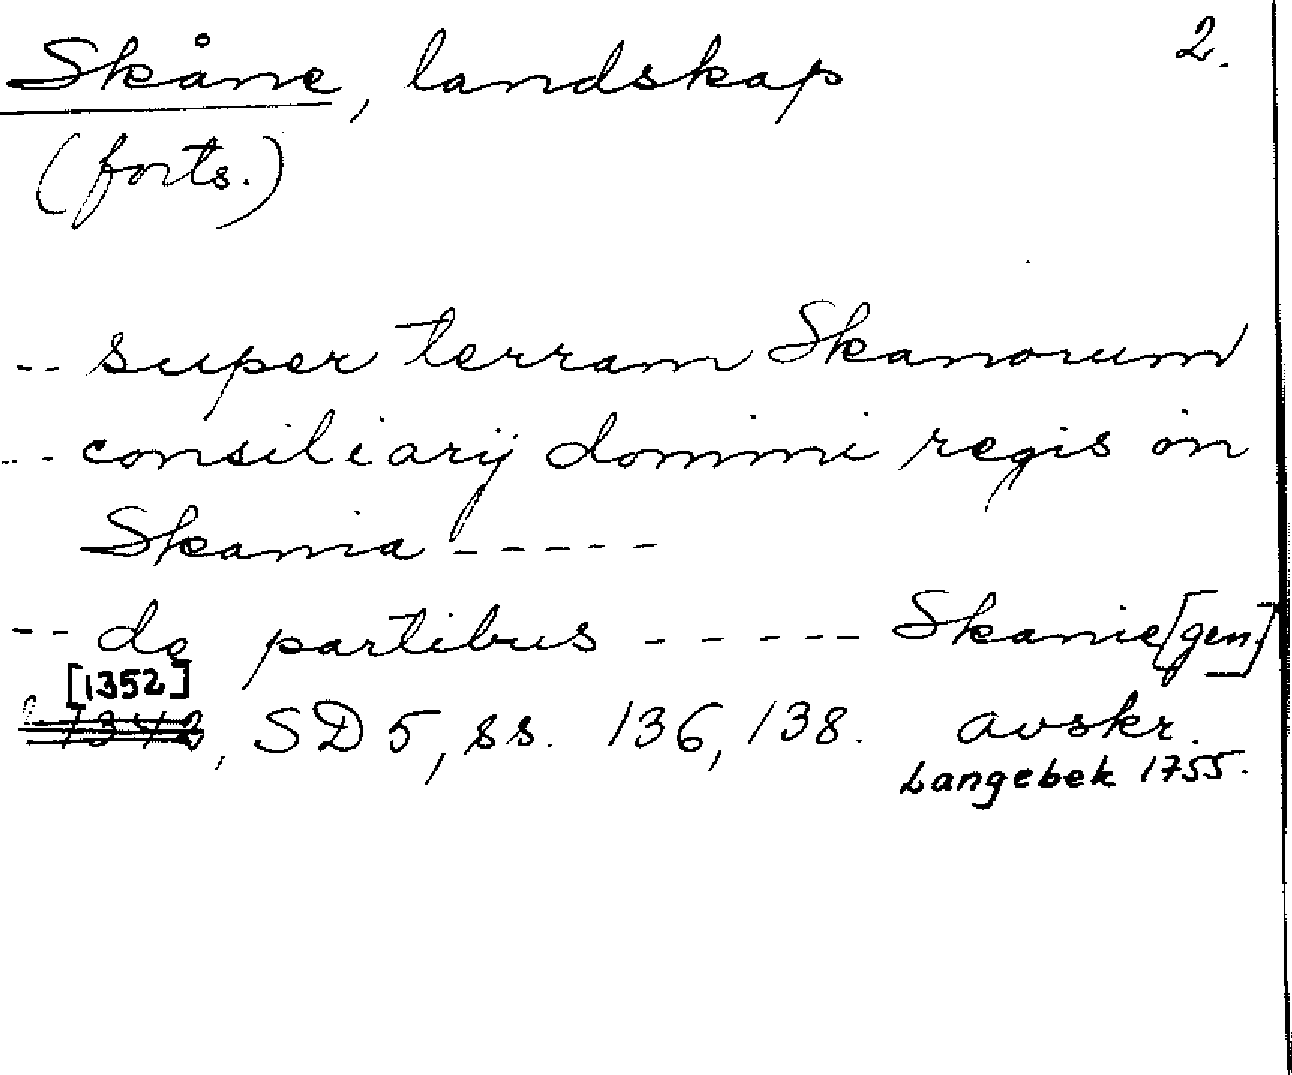 Skåne, landskap 2.
(forts.)
-- super terram Skanorum
-- - consiliarij domini regis in
Skania - - - - -
-- de partibus - - - - - Skanie [gen]
[1352]
1342, SD 5, ss. 136, 138. avskr.
Langebek 1755.